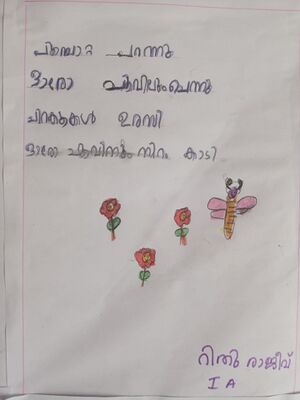 പിമ്പാറ്റ പറന്നു
ഓരോ പൂവിലുംചെന്നു
ചിറകുകൾ ഉരസി
ഓരോ പൂവിനും നിറം കാടി
റിതു രാജീവ്
I A